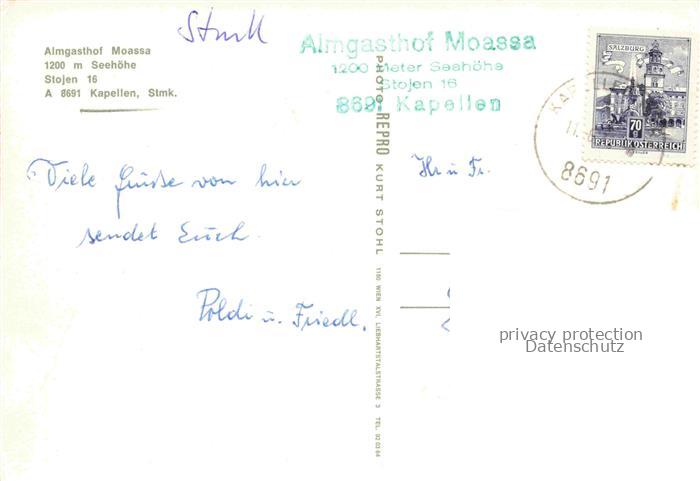 Stmk
Almgasthof Moassa
1200 m Seehöhe
Stojen 16
A 8691 Kapellen, Stmk.
Almgasthof Moassa
1200 Meter Seehöhe
Stojen 16
8691 Kapellen
SALZBURG
70
g
REPUBLIK ÖSTERREICH
8691
Viele Grüße von hier
sendet Euch
Poldi u. Friedl.
PHOTO REPRO KURT STOHL
1160 WIEN XVI, LIEBHARTSTALSTRASSE 3 TEL. 92 03 64
Hr u Fr.
privacy protection
Datenschutz